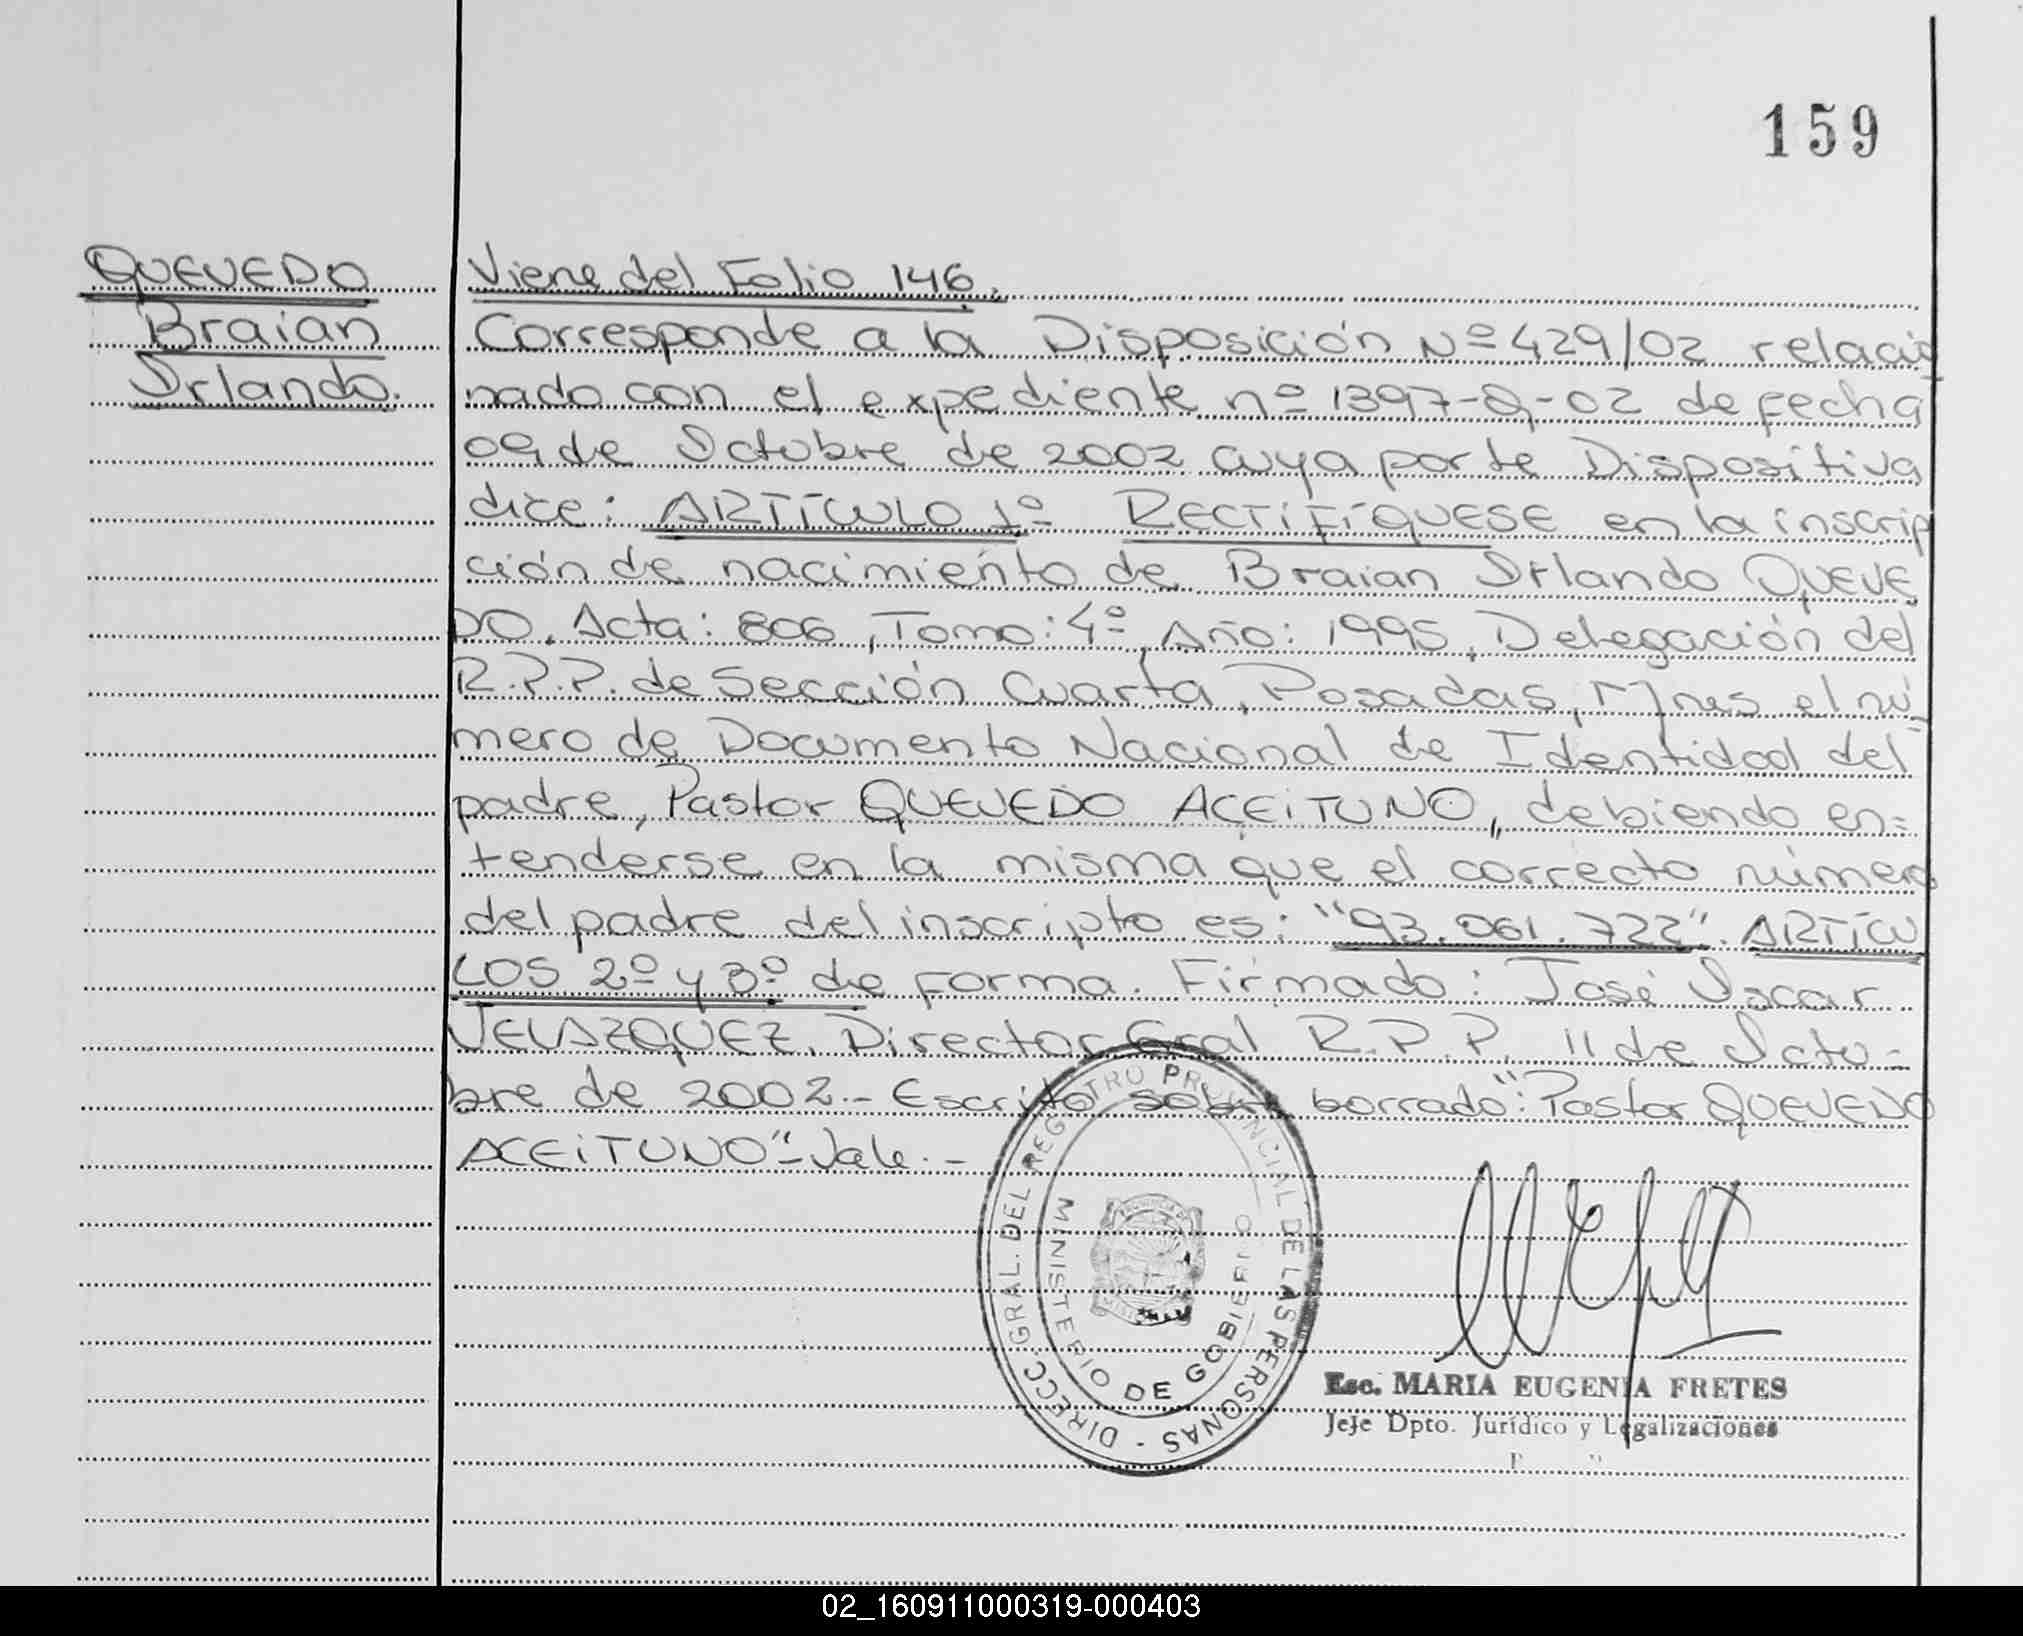 159
QUEVEDO
Braian
Orlando.
Viene del Folio 146.
Corresponde a la Disposición Nº 429/02 relacio
nado con el expediente nº 1397-Q-02 de fecha
09 de Octubre de 2002 cuya parte Dispositiva
dice: ARTÍCULO 1º RECTIFÍQUESE en la inscrip
ción de nacimiento de Braian Orlando QUEVE
DO. Acta: 806, Tomo: 4º, Año: 1995, Delegación del
R.P.P. de Sección Cuarta, Posadas, Mnes el nú-
mero de Documento Nacional de Identidad del
padre, Pastor QUEVEDO ACEITUNO, debiendo en=
tenderse en la misma que el correcto número
del padre del inscripto es: "93.061.722". ARTÍCU
LOS 2º y 3º de forma. Firmado: José Oscar
VELAZQUEZ. Director Gral R.P.P. 11 de Octu-
bre de 2002.- Escrito sobre borrado": Pastor QUEVEDO
ACEITUNO"- Vale.-
DIRECC. GRAL. DEL REGISTRO PROVINCIAL DE LAS PERSONAS -
MINISTERIO DE GOBIERNO
Esc. MARIA EUGENIA FRETES
Jefe Dpto. Jurídico y Legalizaciones
02_160911000319-000403